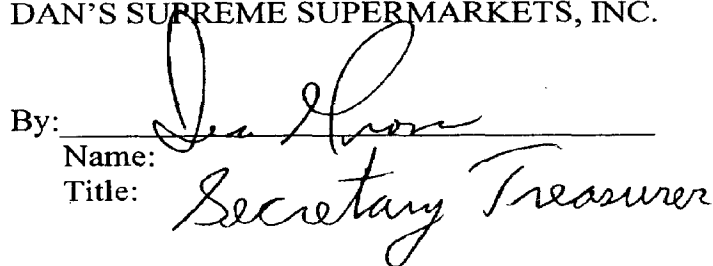 DAN'S SUPREME SUPERMARKETS, INC.
By:
Name:
Title: Secretary Treasurer